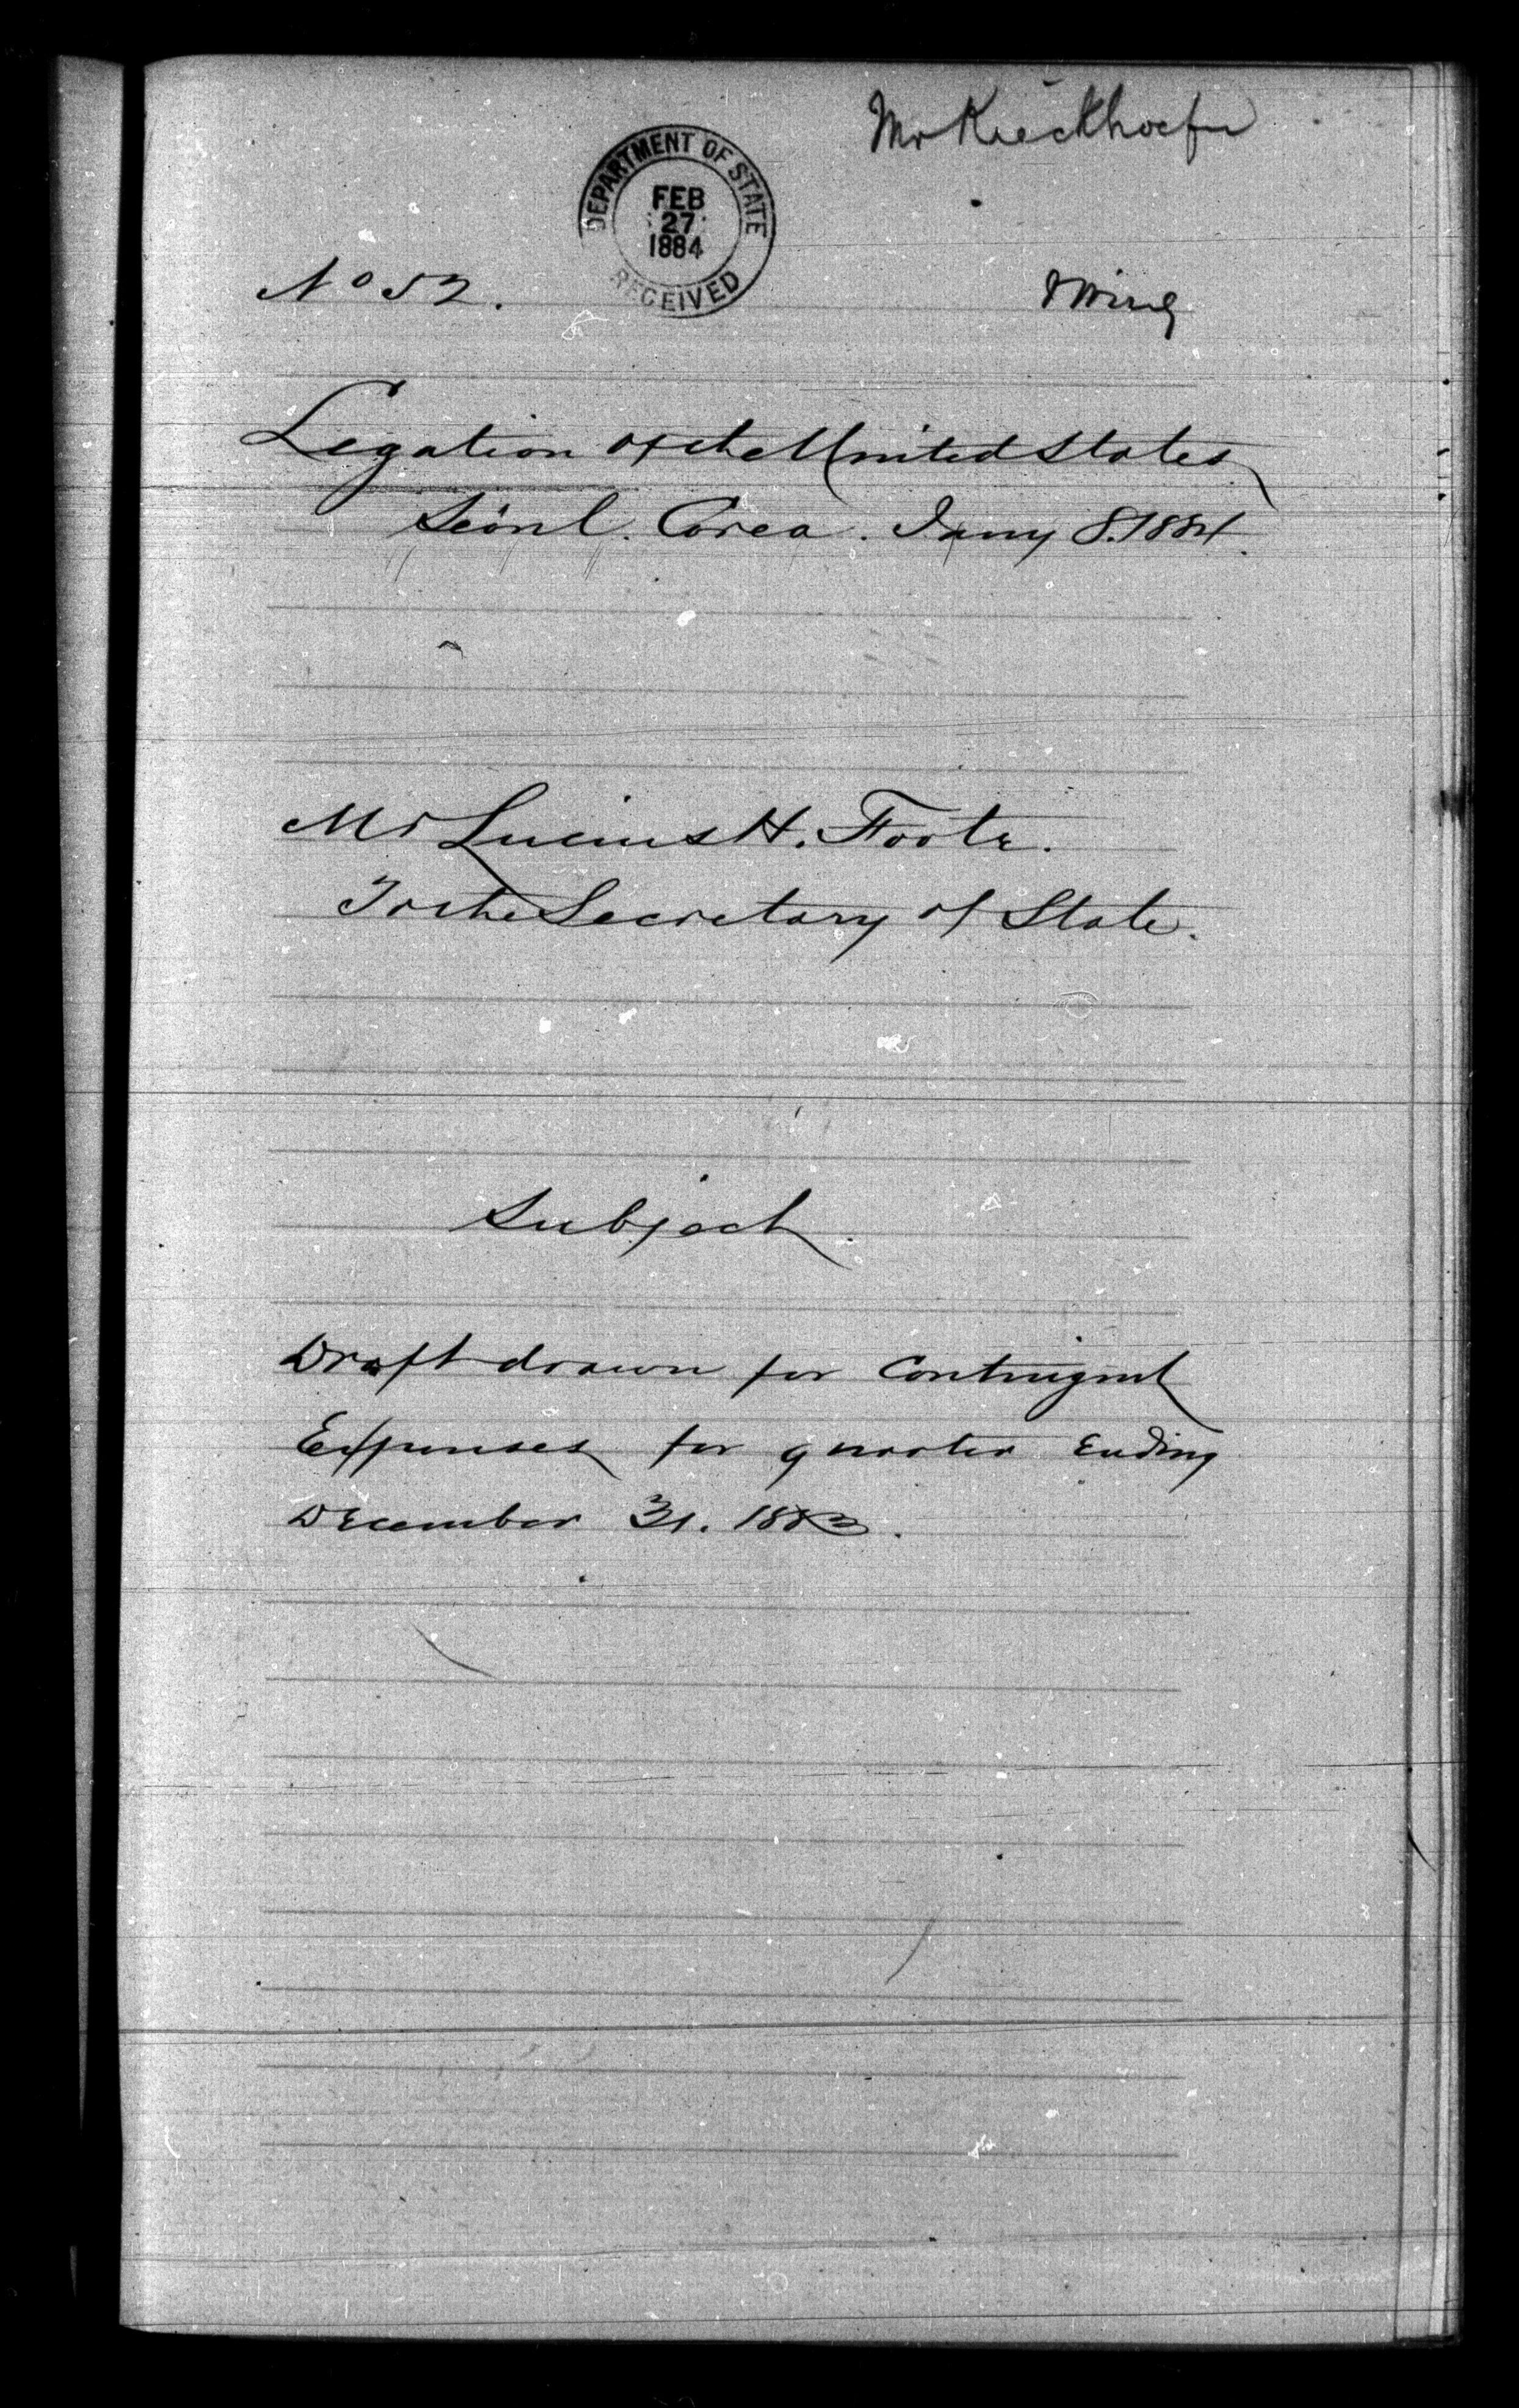 Mr Kieckhoefer
DEPARTMENT OF STATE
FEB
27
1884
RECEIVED
No 52.
Legation of the United States
Séoul. Corea. Jany 8. 1884.
Mr Lucius H. Foote.
To the Secretary of State.
Subject.
Draft drawn for Contingent
Expenses for quarter Ending
December 31. 1883.